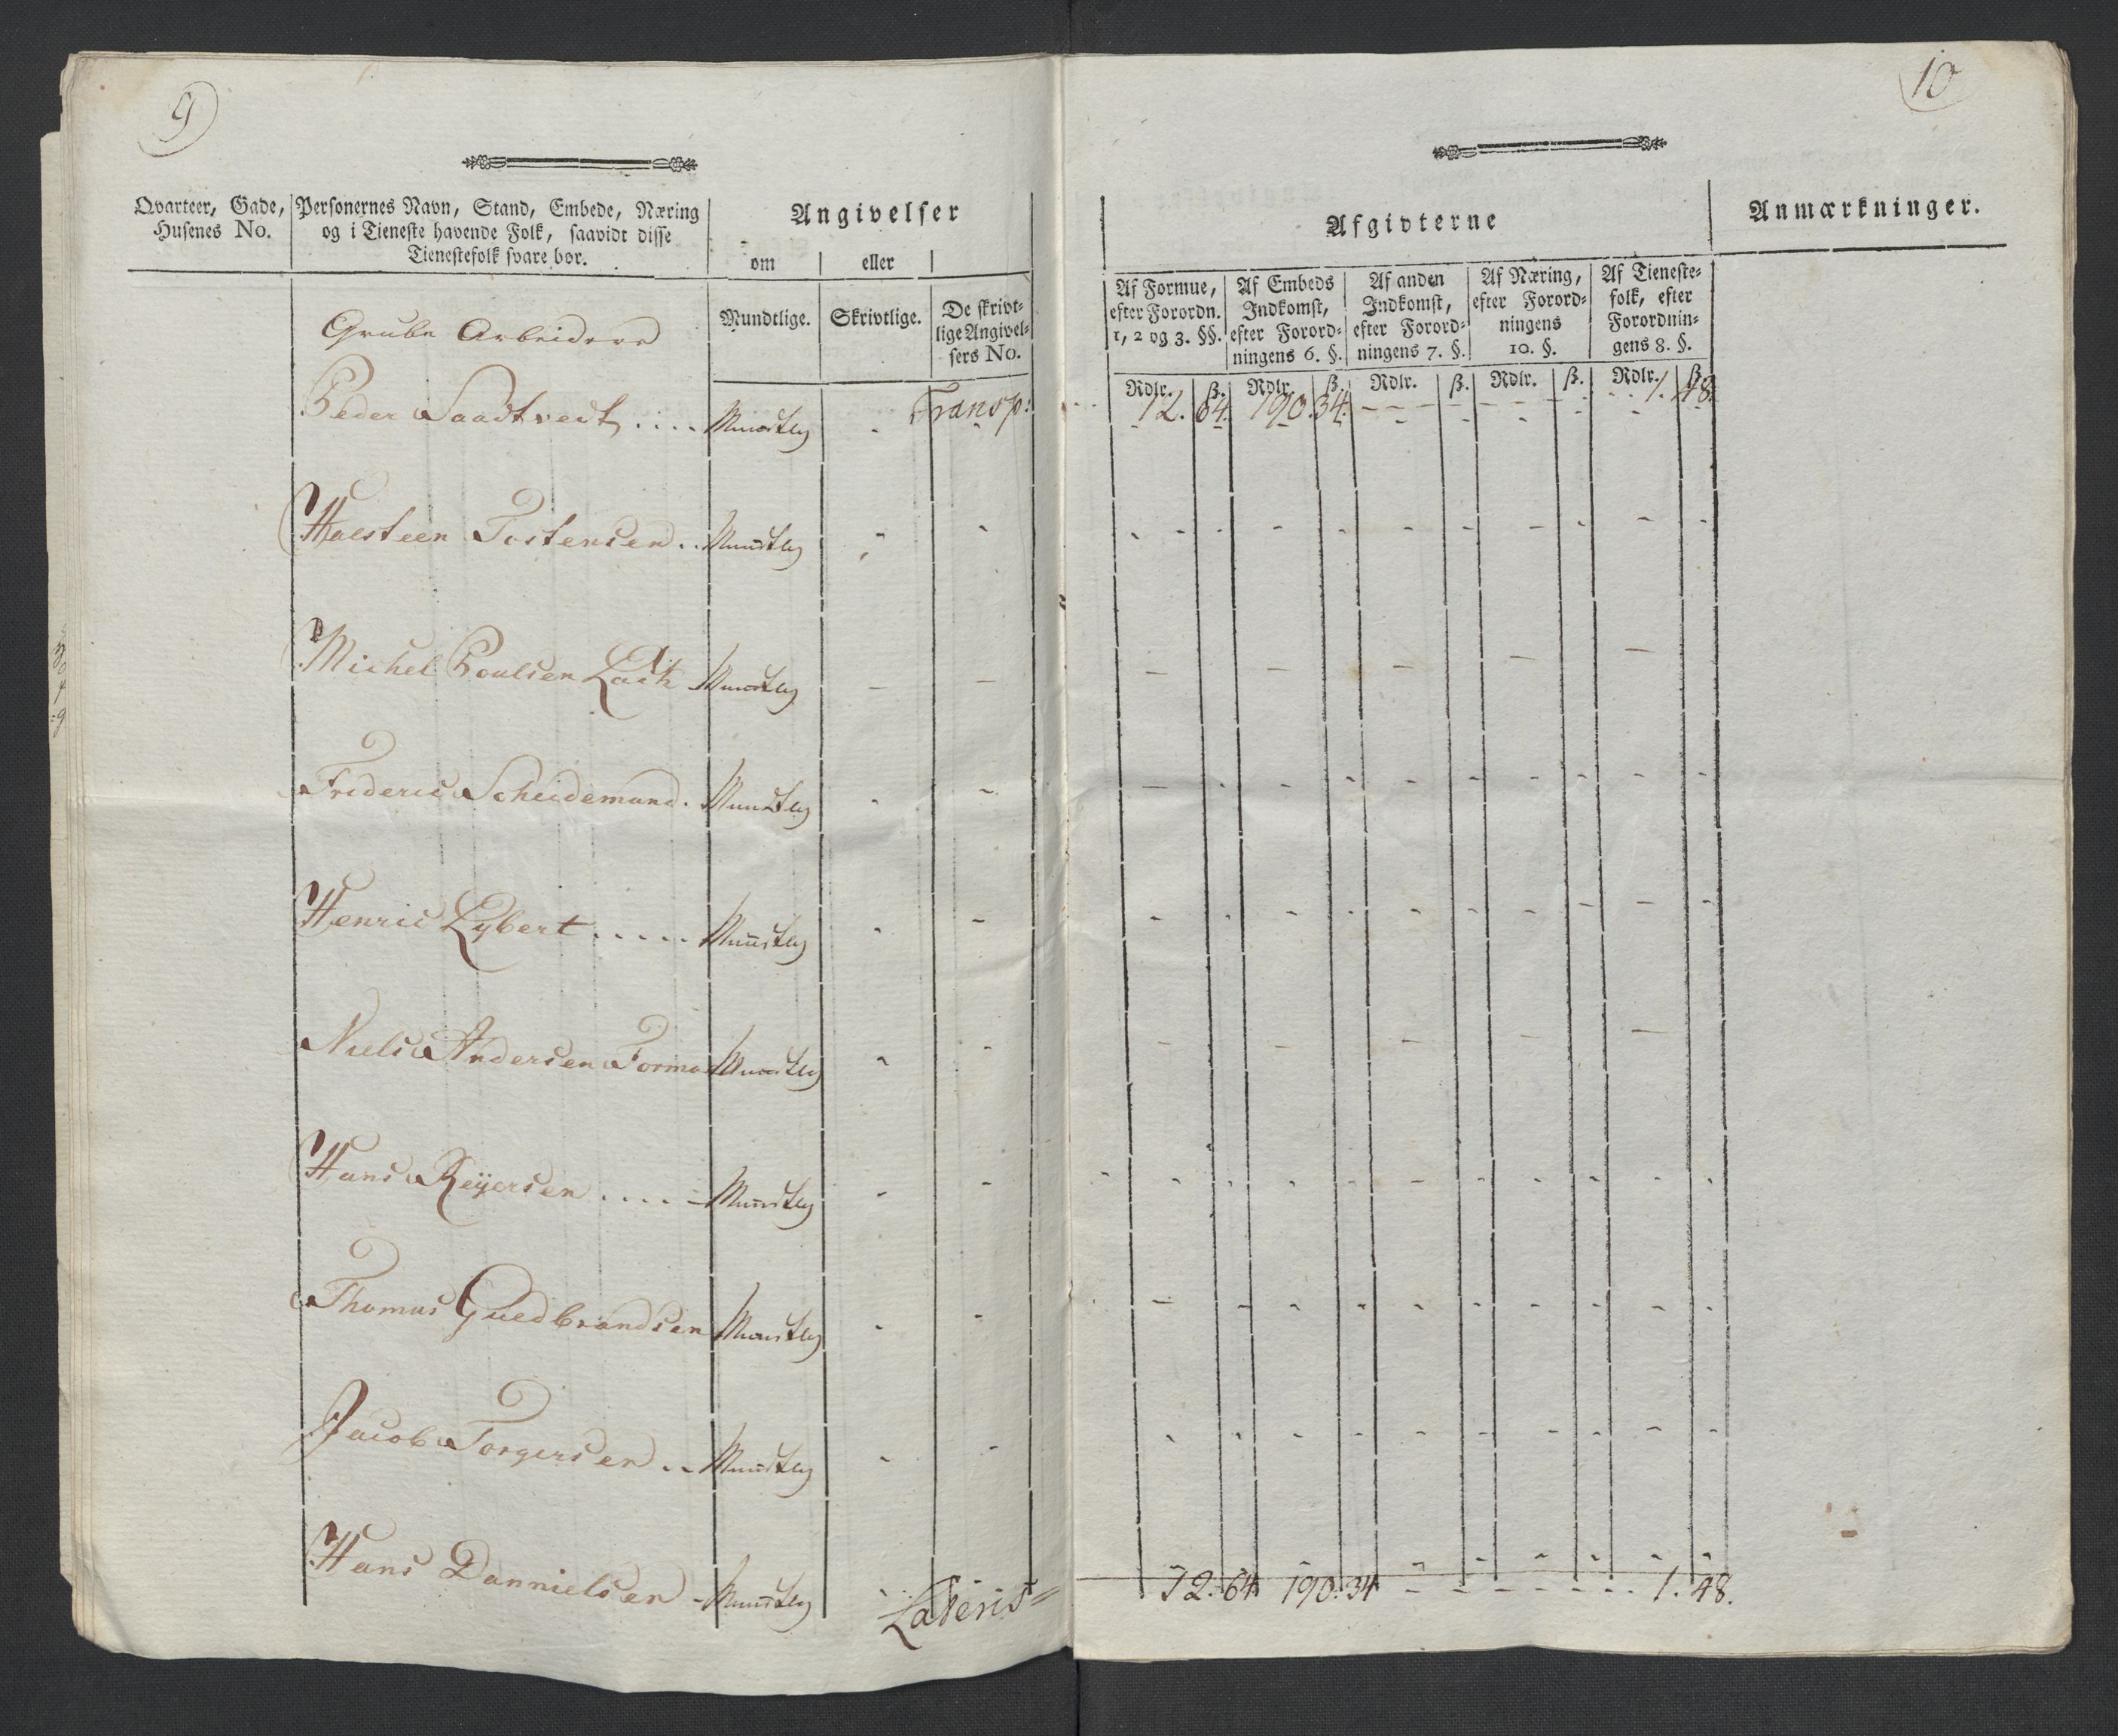 9
Qvarteer, Gade,
Husenes No.
Personernes Navn, Stand, Embede, Næring
og i Tieneste havende Folk, saavidt disse
Tienestefolk svare bør.
Angivelser
om eller
Mundtlige. Skrivtlige. De skrivt-
lige Angivel-
sers No.
Grube Arbeidere
Transp:
Peder Saadtvedt ..... Mundtlig - -
Halsteen Tostensen .. Mundtlig - -
Michel Poulsen Lack Mundtlig - -
Frideric Scheidemand . Mundtlig - -
Henric Lybert ..... Mundtlig - -
Niels Andersen Formo Mundtlig - -
Hans Reyersen ..... Mundtlig - -
Thomas Guedbrandsen Mundtlig - -
Jacob Torgersen .. Mundtlig - -
Hans Dannielsen - Mundtlig - -
Lateris =
10
Afgivterne
Anmærkninger.
Af Formue,
efter Forordn.
1, 2 og 3. §§.
Af Embeds
Indkomst,
efter Forord-
ningens 6. §.
Af anden
Indkomst,
efter Forord-
ningens 7. §.
Af Næring,
efter Forord-
ningens
10. §.
Af Tieneste-
folk, efter
Forordnin-
gens 8. §.
Rdlr. ß. Rdlr. ß. Rdlr. ß. Rdlr. ß. Rdlr. ß.
12. 64. 190. 34. - - - - - - 1. 48.
12. 64 190. 34 - - - - - - 1. 48.